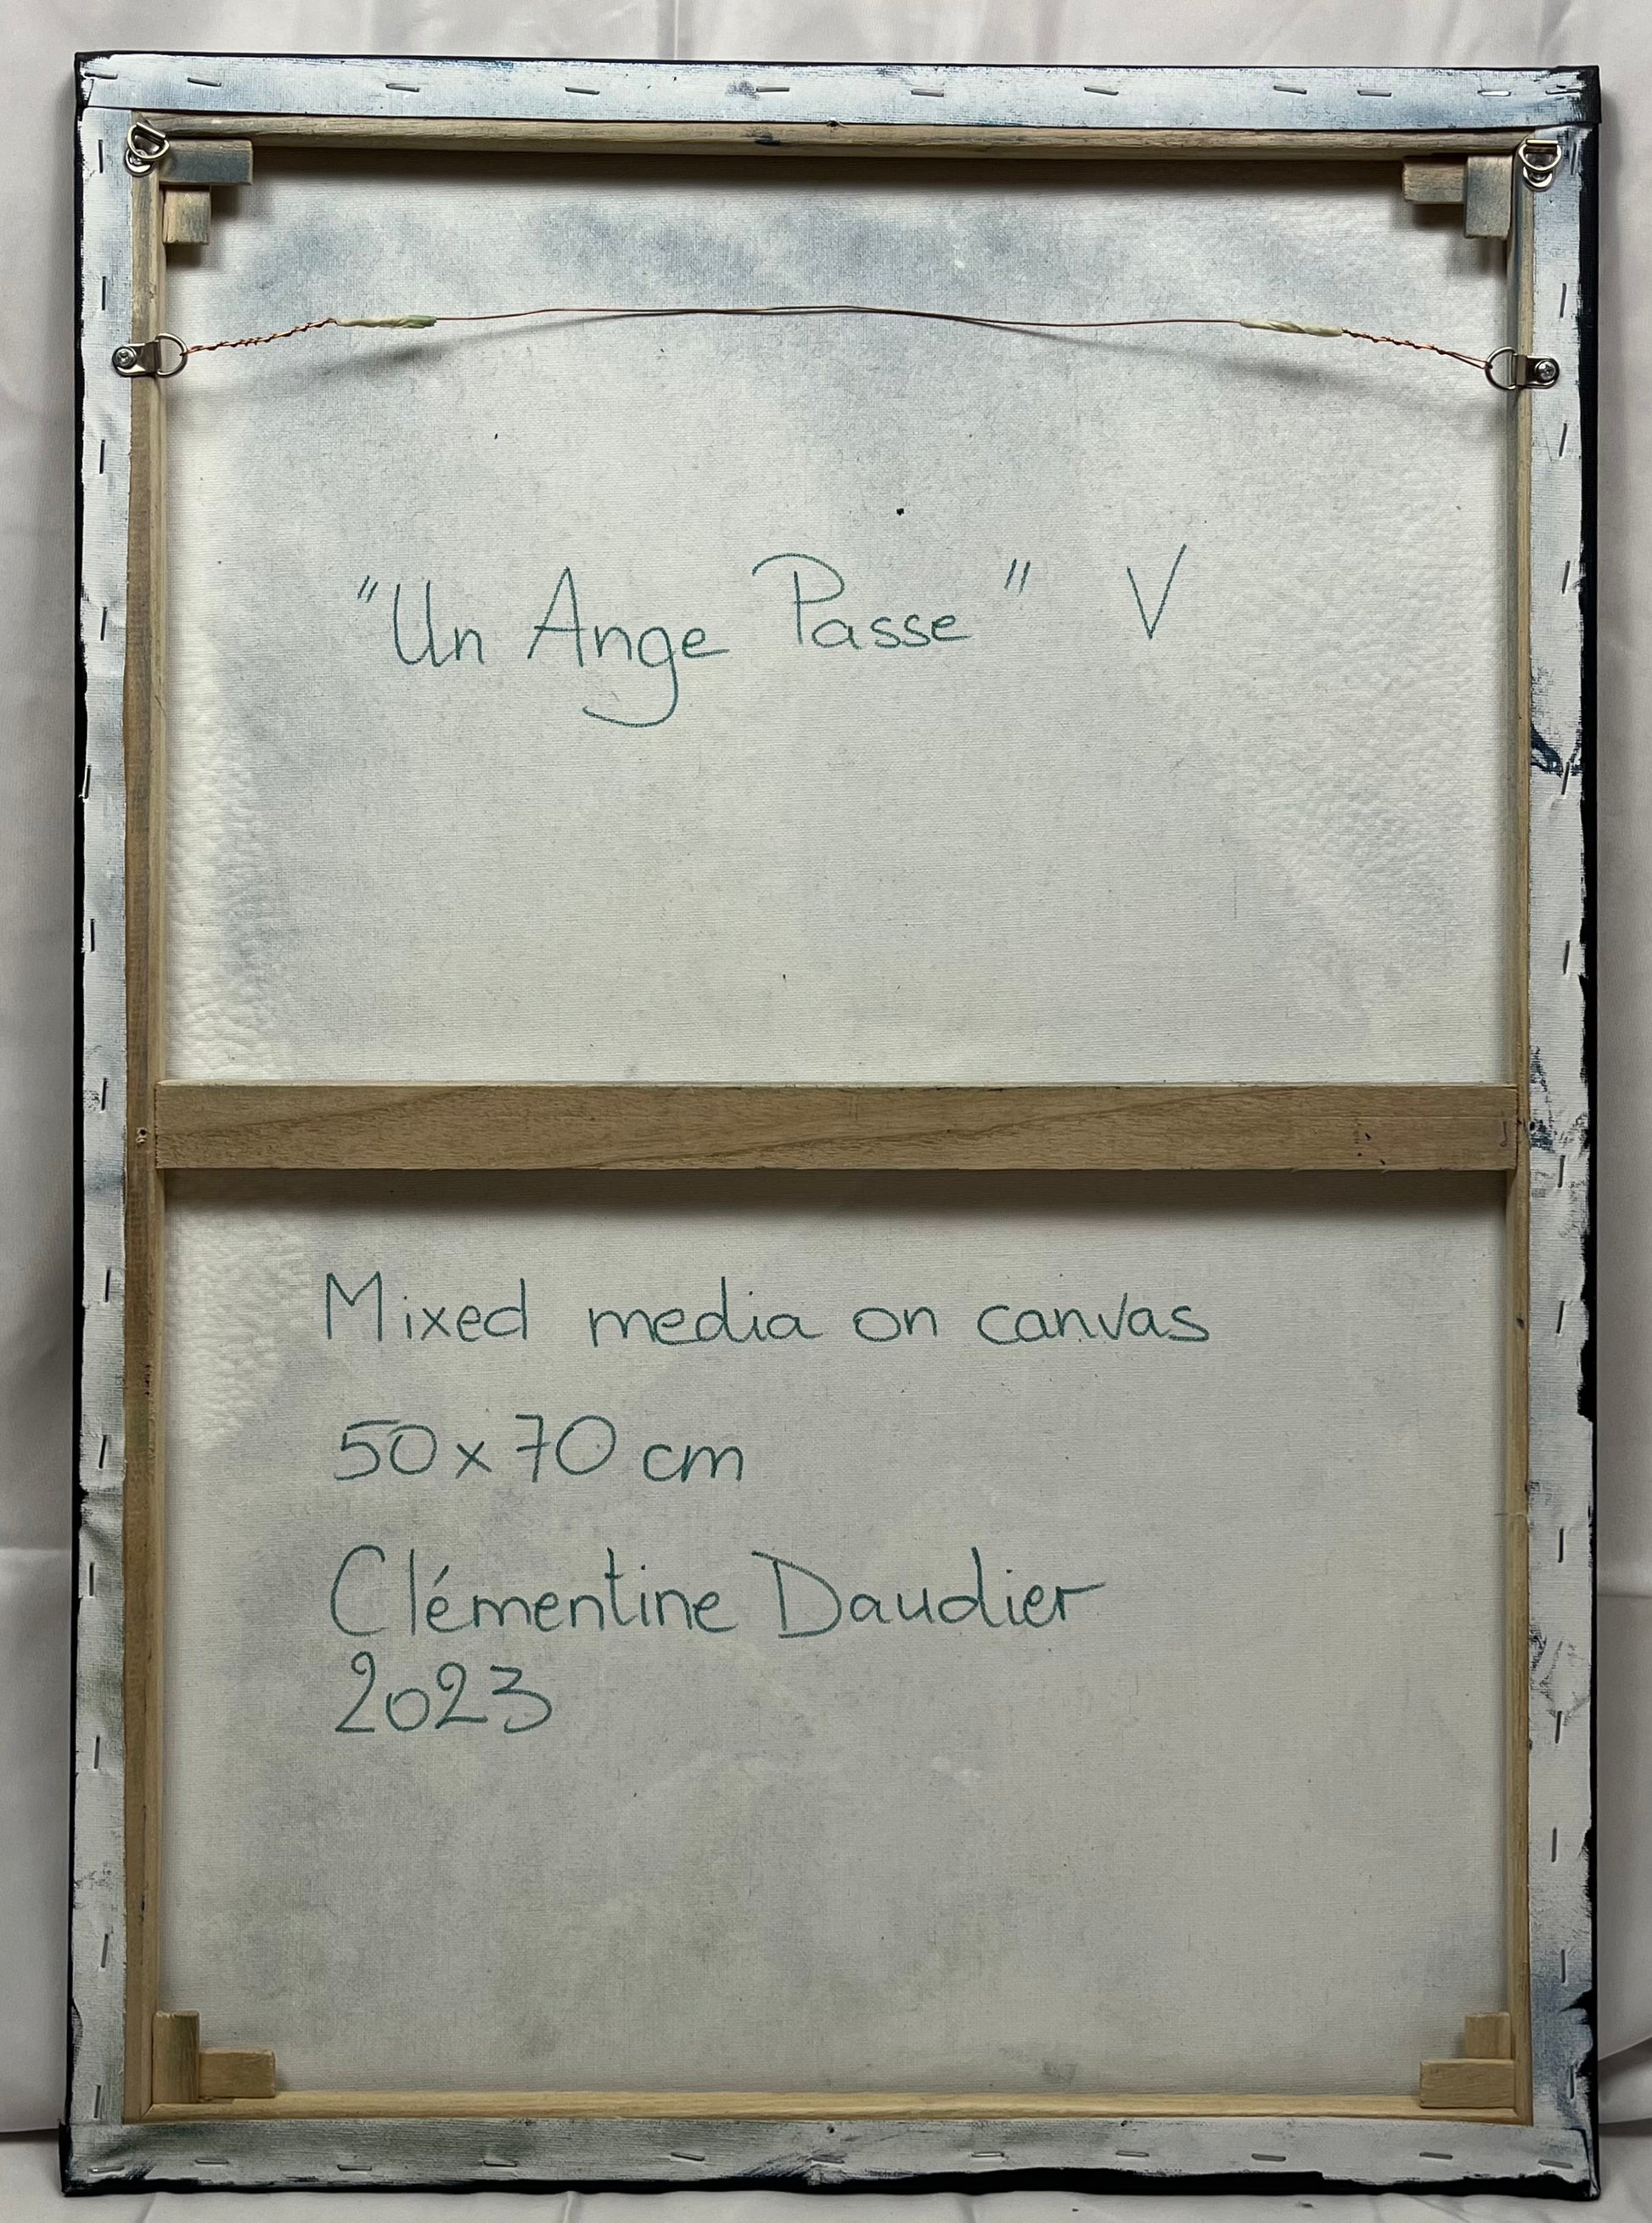 "Un Ange Passe" V
Mixed media on canvas
50x70 cm
Clémentine Daudier
2023